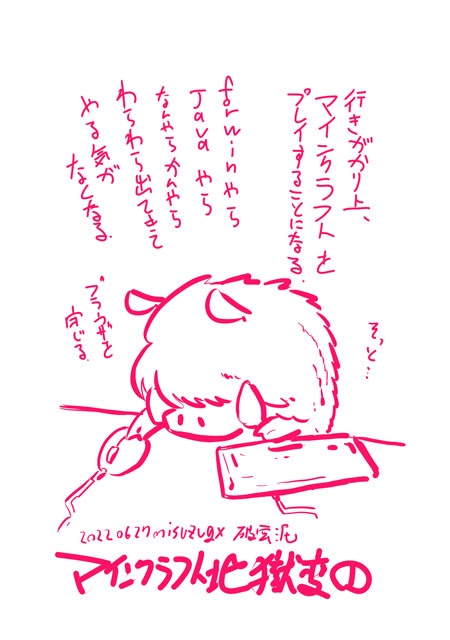 行きがかり上、
マインクラフトを
プレイすることになる。
forwinやら
Javaやら
なんやらかんやら
わらわら出てきて
やる気が
なくなる。
そっと…
ブラウザを
閉じる。
20220627misuzugx 破雲泥
マインクラフト地獄変①